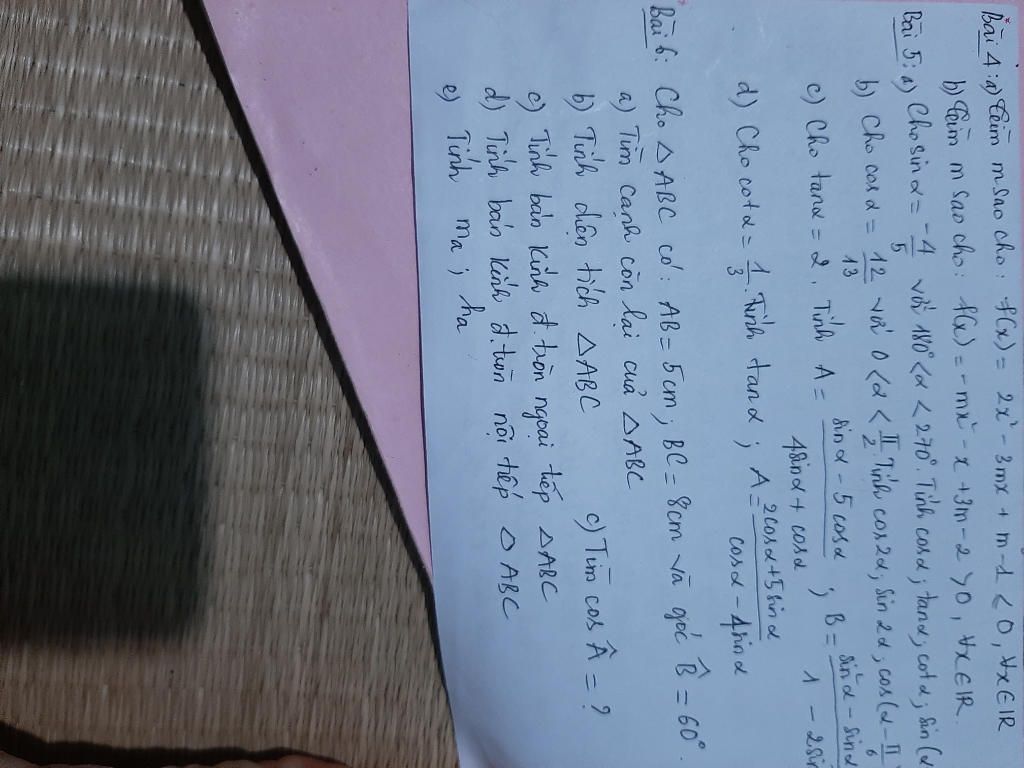 Bài 4: a) Tìm m sao cho: f(x) = 2x² - 3mx + m - 1 < 0, ∀x ∈ ℝ
b) Tìm m sao cho: f(x) = -mx² - x + 3m - 2 > 0, ∀x ∈ ℝ.
Bài 5: a) Cho sin α = -4/5 với 180° < α < 270°. Tính cos α; tan α; cot α; sin(α
b) Cho cos α = 12/13 với 0 < α < π/2. Tính cos 2α; sin 2α; cos(α - π/6
c) Cho tan α = 2. Tính A = (sin α - 5 cos α)/(4 sin α + cos α); B = (sin²α - sin α)/(1 - 2 si
d) Cho cot α = 1/3. Tính tan α; A = (2 cos α + 5 sin α)/(cos α - 4 sin α)
Bài 6: Cho △ABC có: AB = 5cm; BC = 8cm và góc B̂ = 60°.
a) Tìm cạnh còn lại của △ABC
b) Tính diện tích △ABC c) Tìm cos Â = ?
c) Tính bán kính đ.tròn ngoại tiếp △ABC
d) Tính bán kính đ.tròn nội tiếp △ABC
e) Tính ma; ha